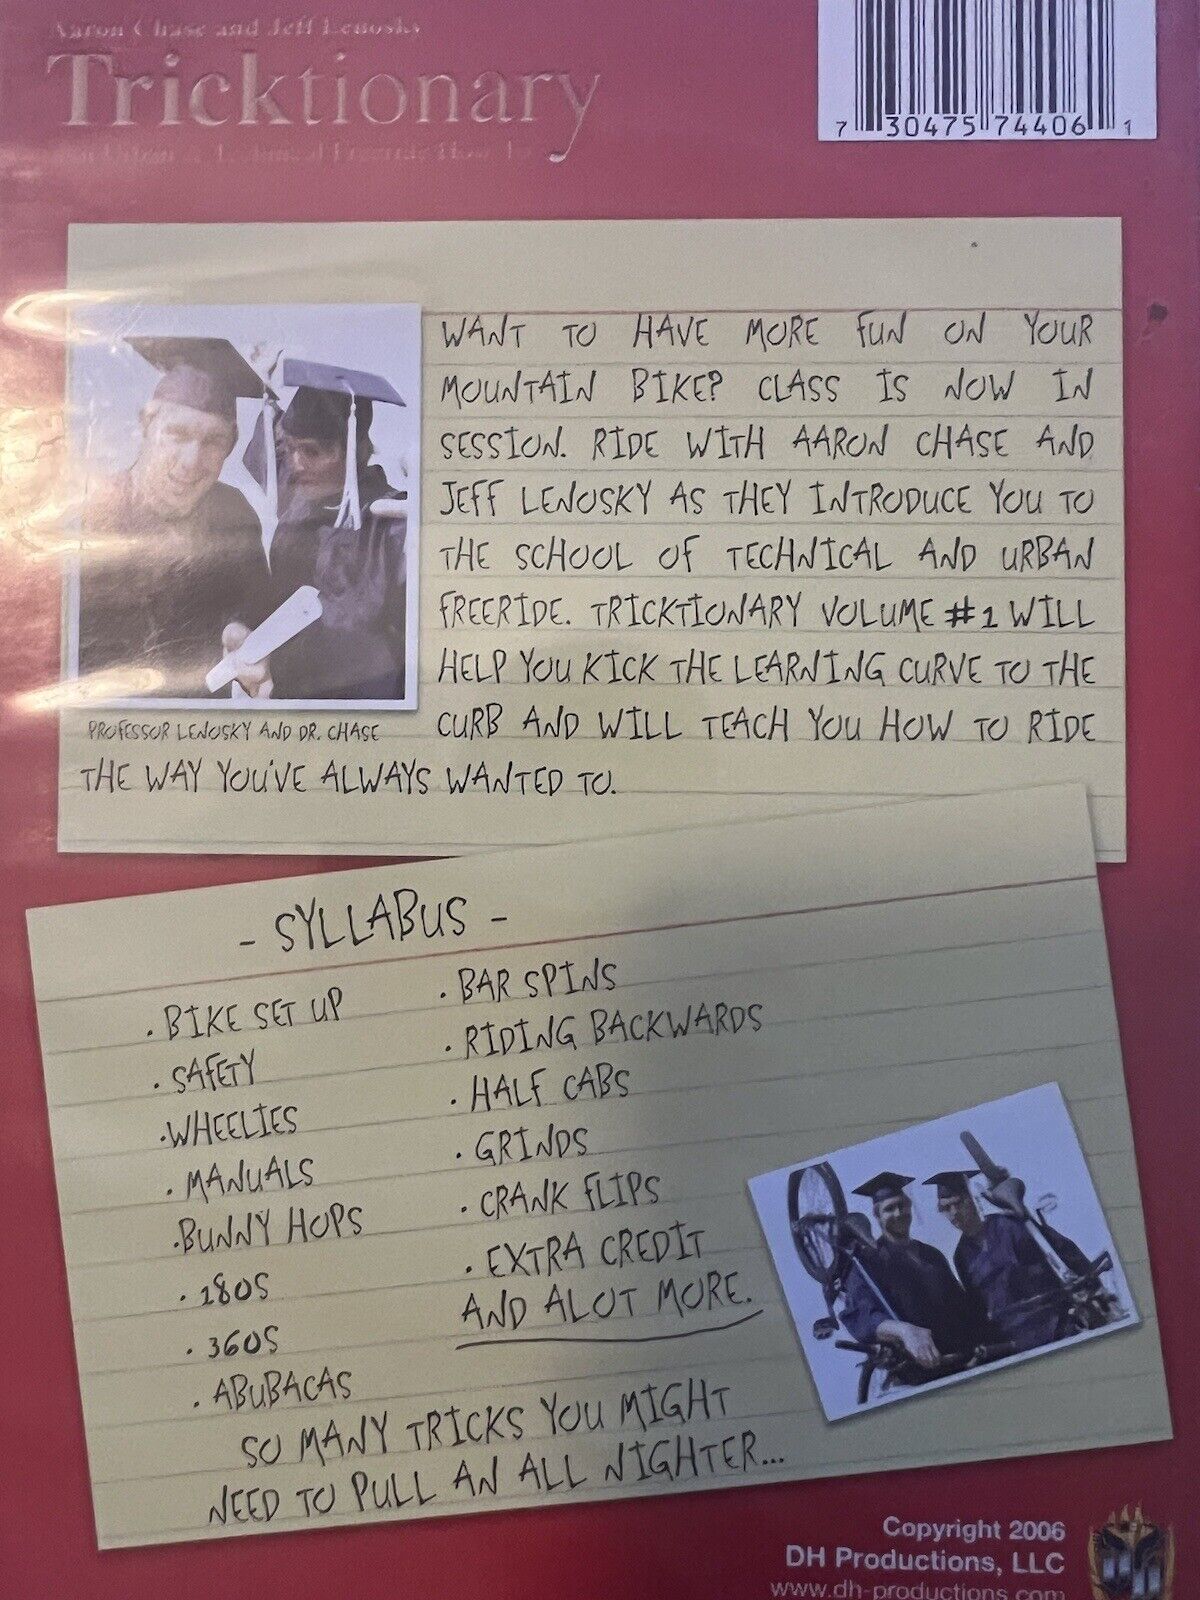 Aaron Chase and Jeff Lenosky
Tricktionary
7 30475 74406 1
WANT TO HAVE MORE FUN ON YOUR
MOUNTAIN BIKE? CLASS IS NOW IN
SESSION. RIDE WITH AARON CHASE AND
JEFF LENOSKY AS THEY INTRODUCE YOU TO
THE SCHOOL OF TECHNICAL AND URBAN
FREERIDE. TRICKTIONARY VOLUME #1 WILL
HELP YOU KICK THE LEARNING CURVE TO THE
CURB AND WILL TEACH YOU HOW TO RIDE
THE WAY YOU'VE ALWAYS WANTED TO.
PROFESSOR LENOSKY AND DR. CHASE
- SYLLABUS -
· BIKE SET UP
· SAFETY
· WHEELIES
· MANUALS
· BUNNY HOPS
· 180S
· 360S
· ABUBACAS
· BAR SPINS
· RIDING BACKWARDS
· HALF CABS
· GRINDS
· CRANK FLIPS
· EXTRA CREDIT
AND ALOT MORE.
SO MANY TRICKS YOU MIGHT
NEED TO PULL AN ALL NIGHTER...
Copyright 2006
DH Productions, LLC
www.dh-productions.com